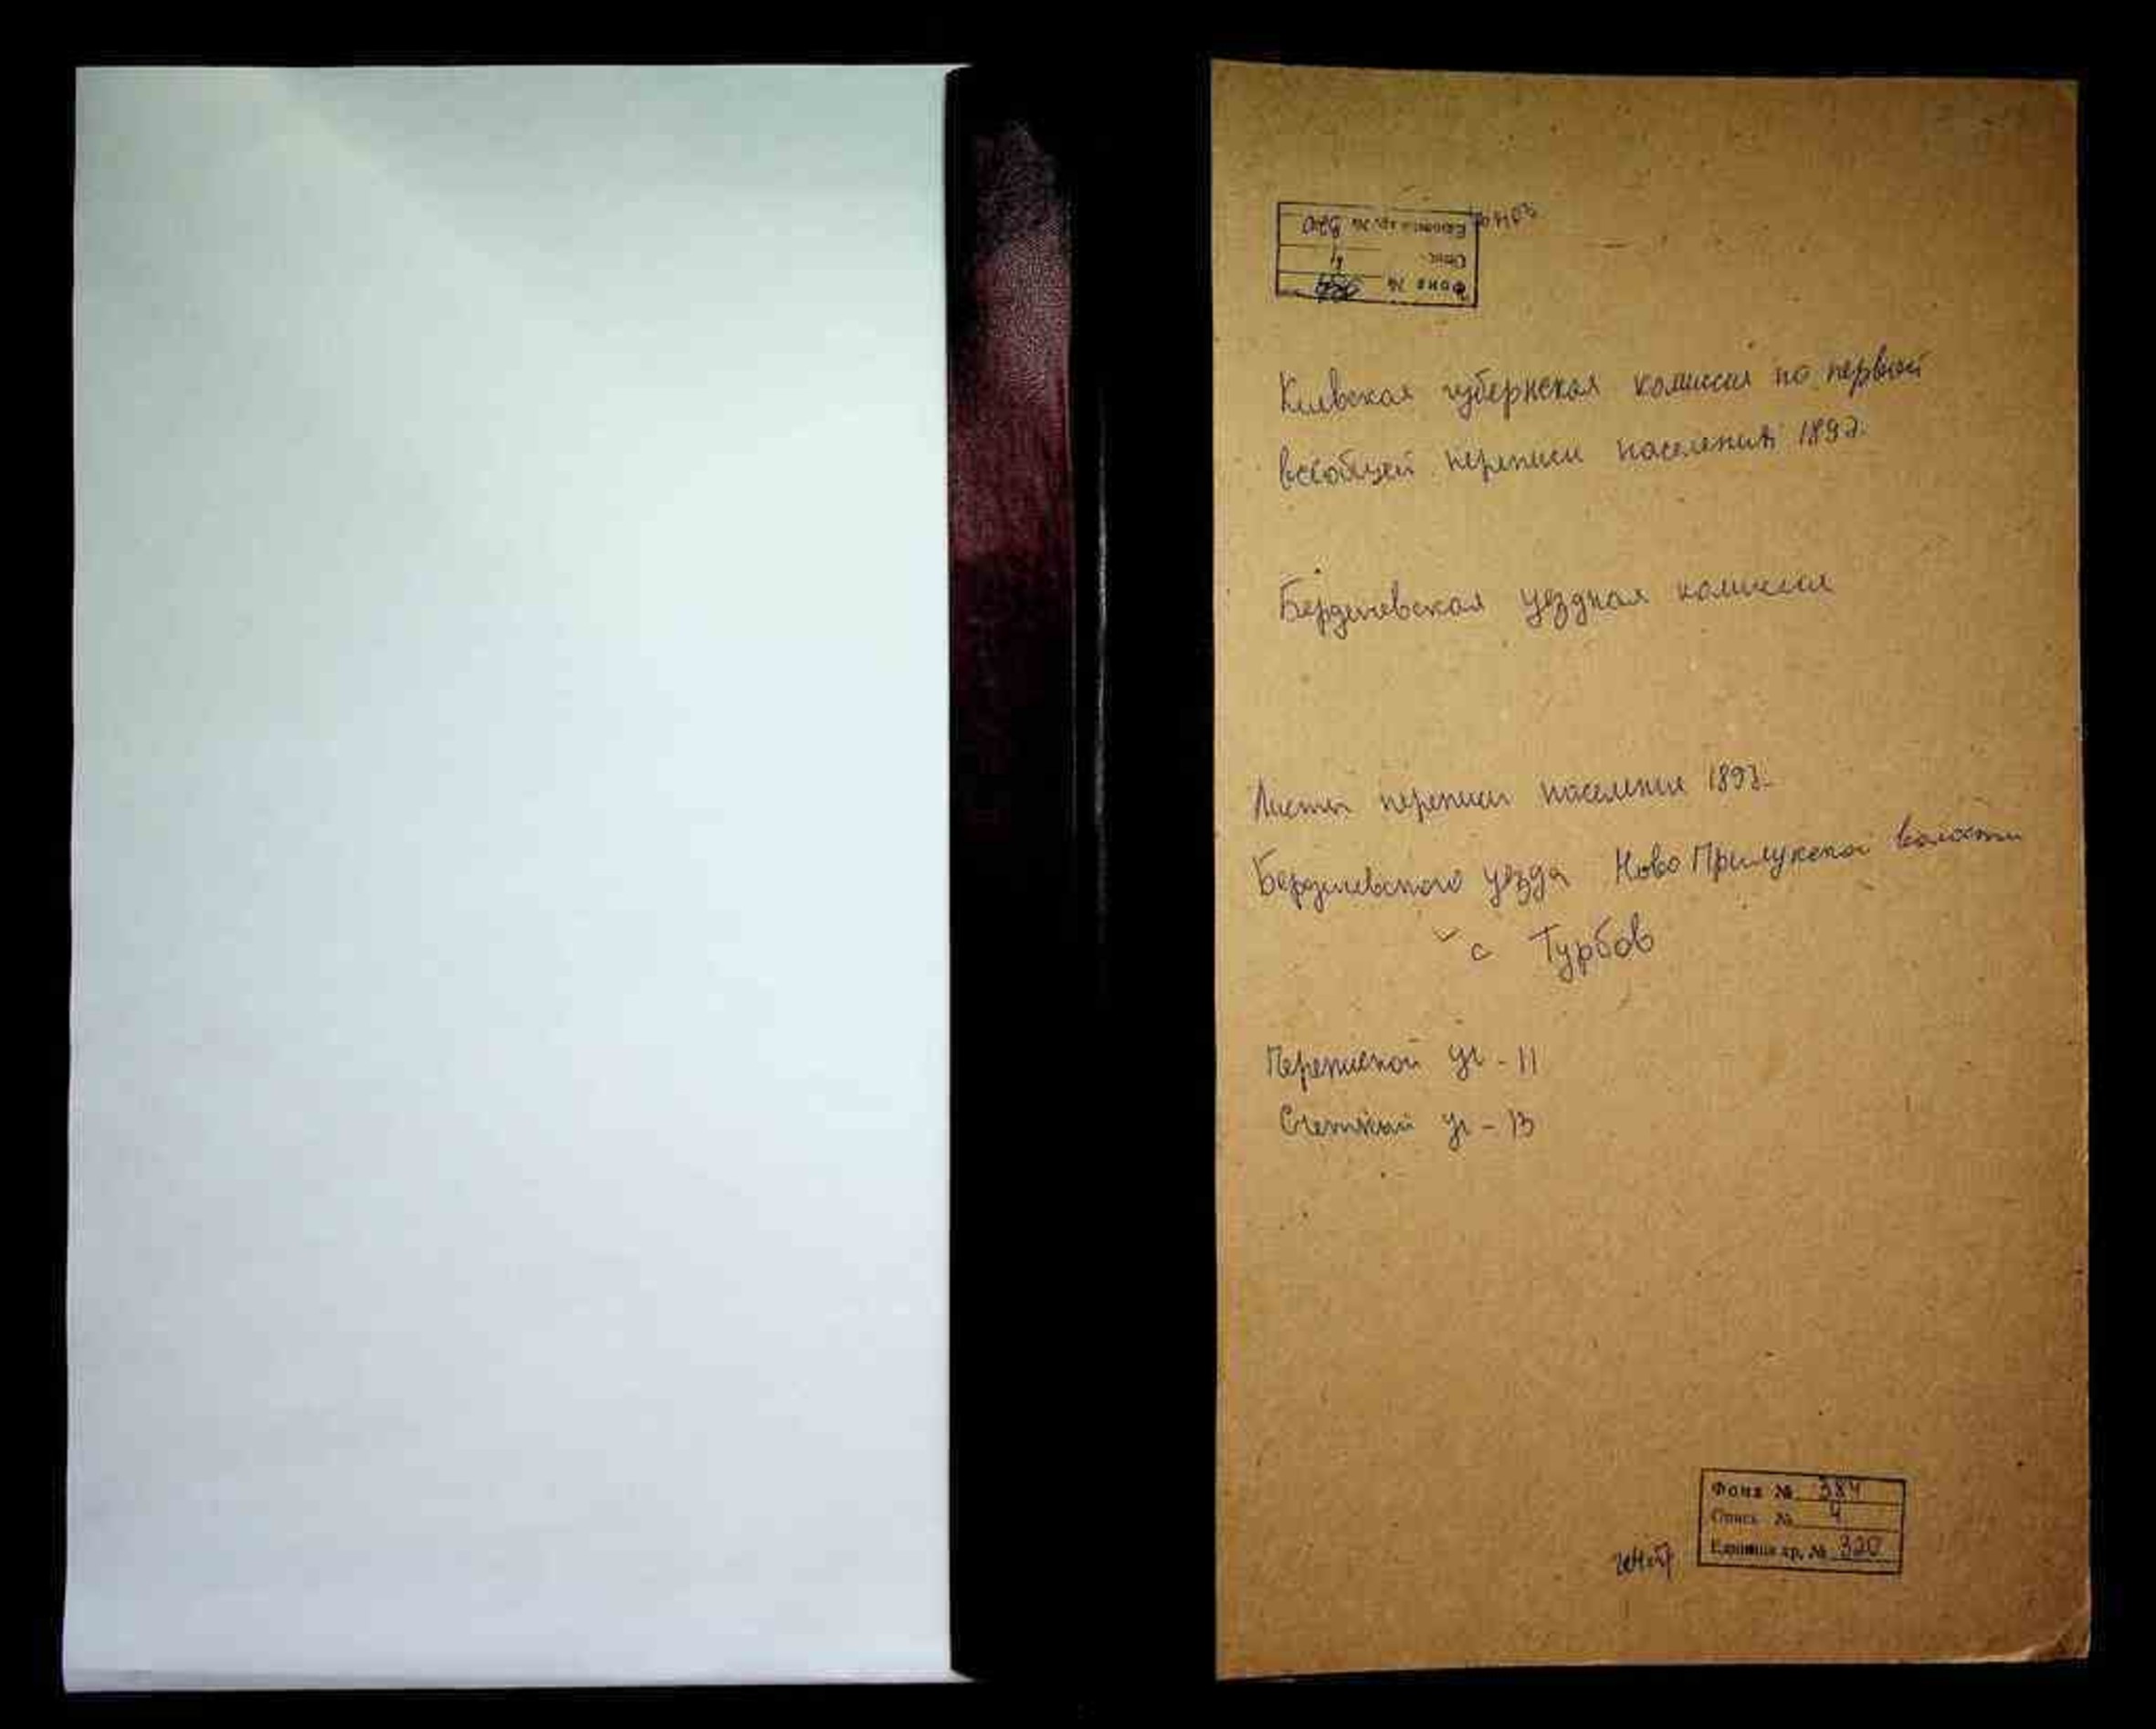 Единица хр. № 320
Опись 4
Фонд № 384
Киевская губернская комиссия по первой
всеобщей переписи населения 1897.
Бердичевская уездная комиссия
Листы переписи населения 1897
Бердичевского уезда Ново Прилукской волости
с Турбов
Переписной уч - 11
Счетный уч - 13
Фонд № 384
Опись № 4
Единица хр. № 320